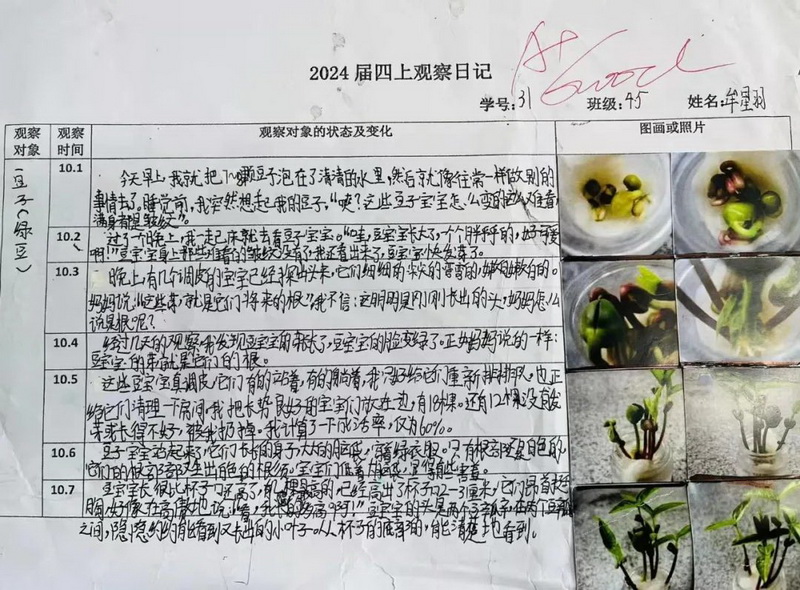 2024 届四上观察日记
A+
Good
学号:31 班级:45 姓名:牟星羽
观察对象 观察时间 观察对象的状态及变化 图画或照片
豆子(绿豆)
10.1
今天早上,我就把豆子泡在了清清的水里,然后就像往常一样做别的
事情去了。睡觉前,我突然想起我的豆子,“咦?这些豆子宝宝怎么变的这么难看
满身都是皱纹”。
10.2
过了一个晚上,我一起床就去看豆子宝宝。“哇,豆宝宝长大了,一个个胖乎乎的,好可爱
啊!”豆宝宝身上那些难看的皱纹没有了,我还看出来了,豆宝宝快发芽了。
10.3
晚上,有几个调皮的宝宝已经探出头来,它们细细的
妈妈说:“这些芽,就是它们将来的根?”我不信:这明明是刚刚长出的头,妈妈怎么
说是根呢?
10.4
经过几天的观察,我发现豆宝宝的芽长了,豆宝宝的脸变绿了。正如妈妈说的一样:
豆宝宝的芽就是它们的根。
10.5
这些豆宝宝真调皮,它们有的站着,有的躺着,我只好给它们重新排排队,也正
给它们清理一下房间。我把长势良好的宝宝们放在一边,有18棵。还有12棵没有发
芽或长得不好,被我扔掉。我计算了一下成活率,仅为60%。
10.6
豆子宝宝站起来了,它们长长的身子,大大的脑袋,绿衣服。只有根部还是白色的,
它们的根部都发生出白色的根须。
10.7
豆宝宝长得比杯子口还高了,有一棵最高的,已经高出了杯子口2-3厘米,它们昂首挺
胸,好像在高傲地说:“看,我长的多高啊!”豆宝宝的头是两个豆瓣,在两个豆瓣
之间,隐隐约约的能看到又长出的小叶子。从杯子的底部,能清楚地看到。